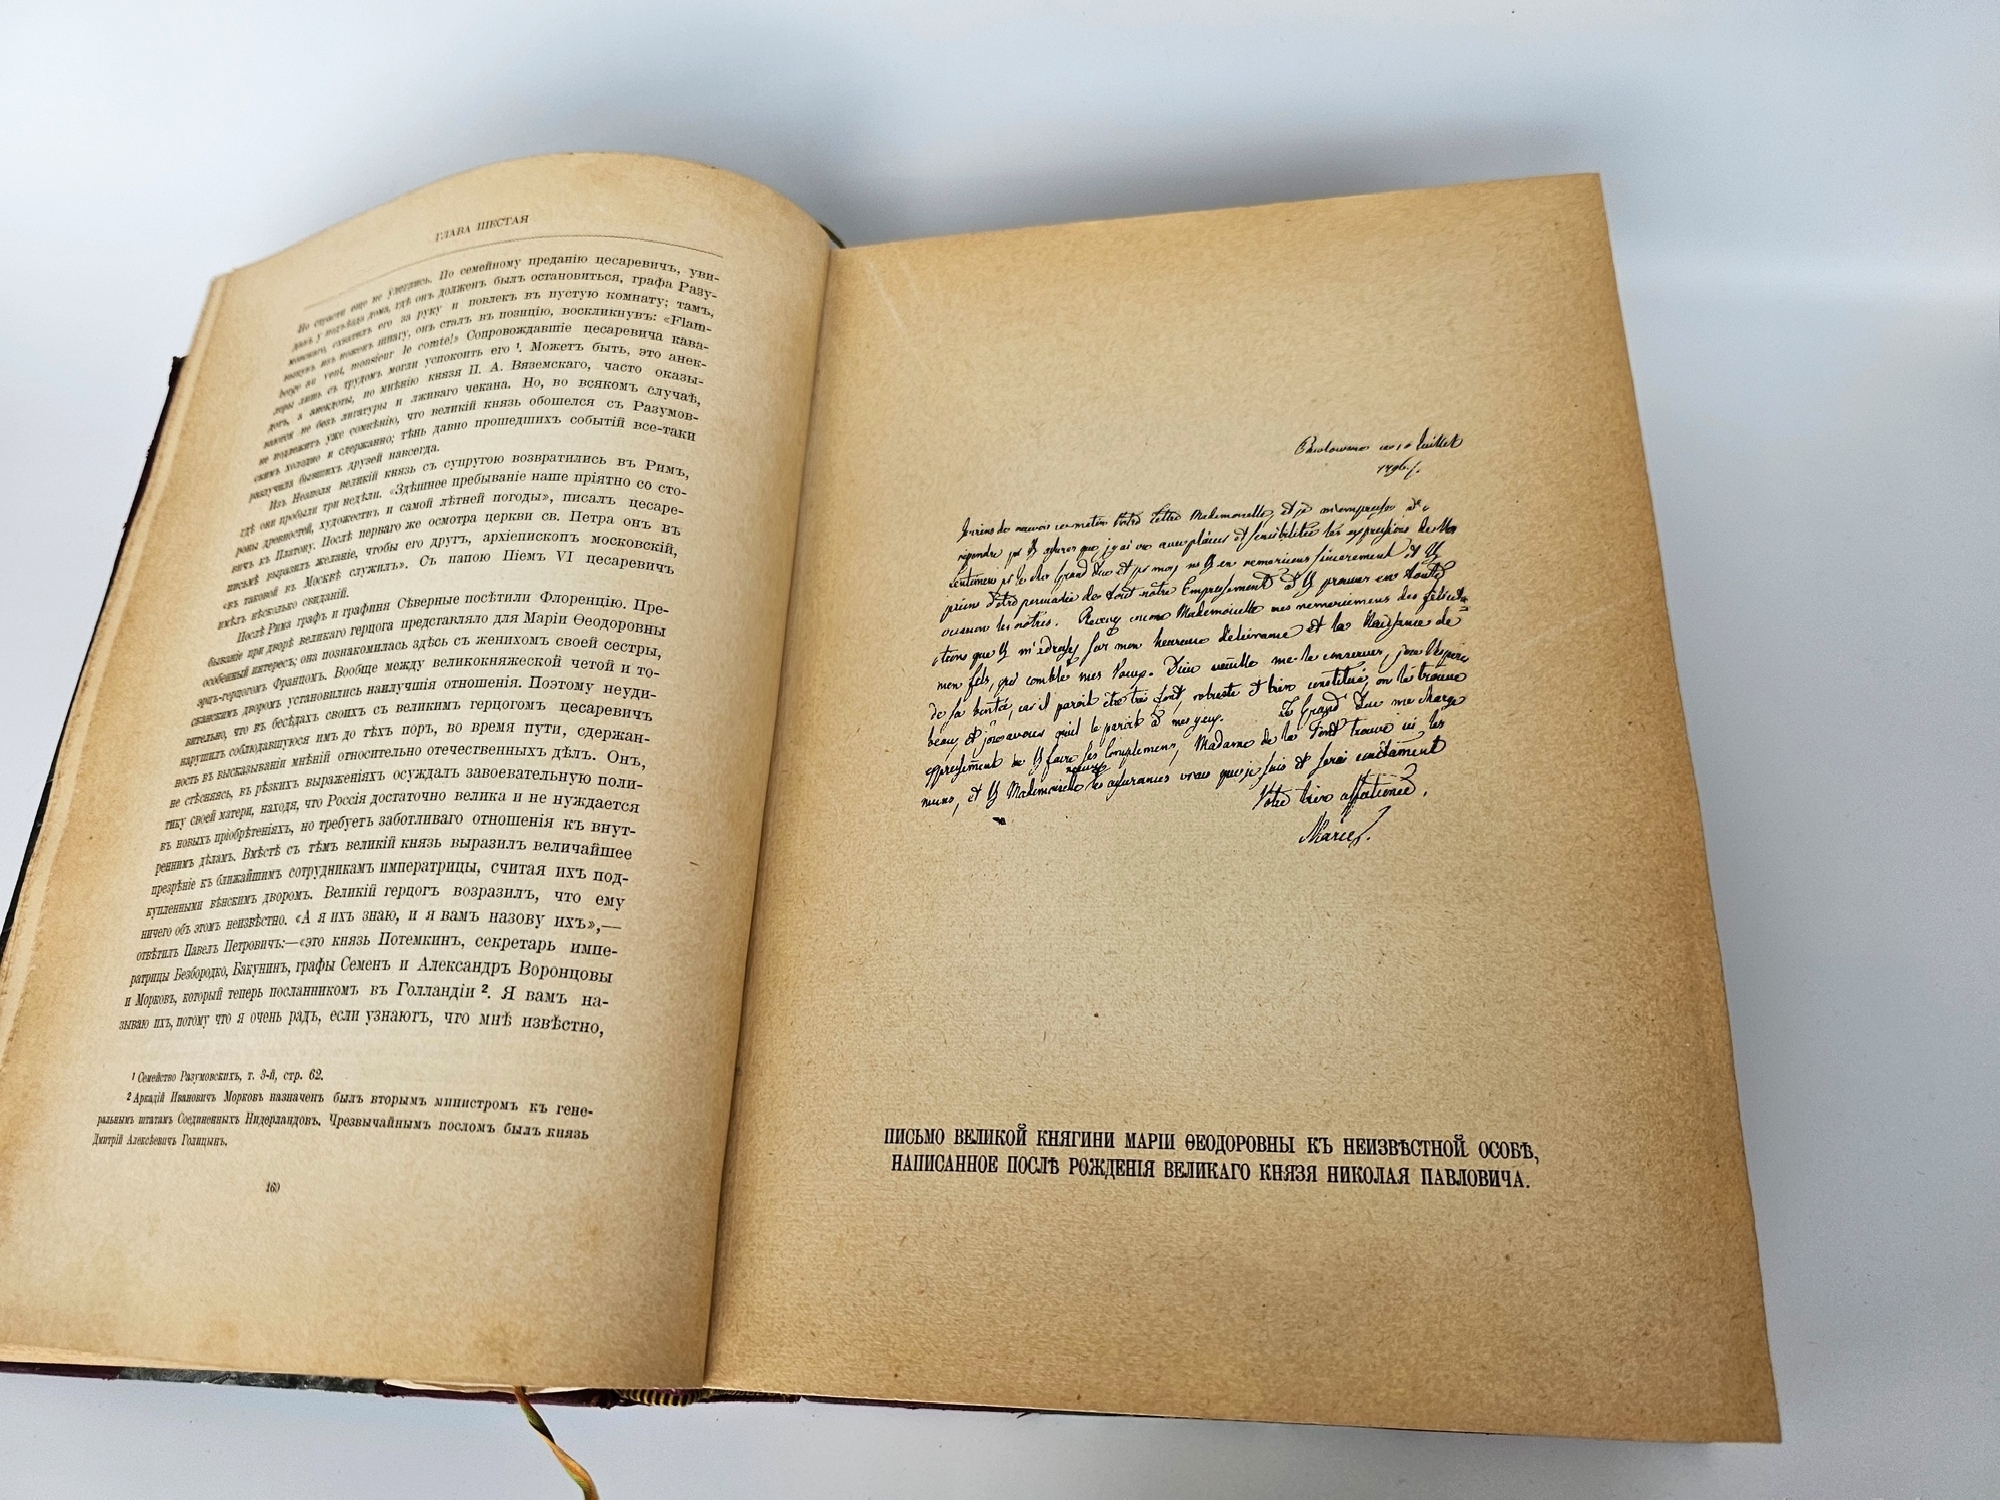 ГЛАВА ШЕСТАЯ
Но страсти еще не улеглись. По семейному преданію цесаревичъ, уви-
давъ у подъѣзда дома, гдѣ онъ долженъ былъ остановиться, графа Разу-
мовскаго, схватилъ его за руку и повлекъ въ пустую комнату; тамъ,
вынувъ изъ ноженъ шпагу, онъ сталъ въ позицію, воскликнувъ: «Flam-
berge au vent, monsieur le comte!» Сопровождавшіе цесаревича кава-
леры лишь съ трудомъ могли успокоить его ¹. Можетъ быть, это анек-
дотъ, а анекдоты, по мнѣнію князя П. А. Вяземскаго, часто оказы-
ваются не безъ лигатуры и лживаго чекана. Но, во всякомъ случаѣ,
не подлежитъ уже сомнѣнію, что великій князь обошелся съ Разумов-
скимъ холодно и сдержанно; тѣнь давно прошедшихъ событій все-таки
разлучила бывшихъ друзей навсегда.
Изъ Неаполя великій князь съ супругою возвратились въ Римъ,
гдѣ они пробыли три недѣли. «Здѣшнее пребываніе наше пріятно со сто-
роны древностей, художествъ и самой лѣтней погоды», писалъ цесаре-
вичъ къ Платону. Послѣ перваго же осмотра церкви св. Петра онъ въ
письмѣ выразилъ желаніе, чтобы его другъ, архіепископъ московскій,
«въ таковой въ Москвѣ служилъ». Съ папою Піемъ VI цесаревичъ
имѣлъ нѣсколько свиданій.
Послѣ Рима графъ и графиня Сѣверные посѣтили Флоренцію. Пре-
бываніе при дворѣ великаго герцога представляло для Маріи Ѳеодоровны
особенный интересъ; она познакомилась здѣсь съ женихомъ своей сестры,
эрцъ-герцогомъ Францомъ. Вообще между великокняжеской четой и то-
сканскимъ дворомъ установились наилучшія отношенія. Поэтому неуди-
вительно, что въ бесѣдахъ своихъ съ великимъ герцогомъ цесаревичъ
нарушилъ соблюдавшуюся имъ до тѣхъ поръ, во время пути, сдержан-
ность въ высказываніи мнѣній относительно отечественныхъ дѣлъ. Онъ,
не стѣсняясь, въ рѣзкихъ выраженіяхъ осуждалъ завоевательную поли-
тику своей матери, находя, что Россія достаточно велика и не нуждается
въ новыхъ пріобрѣтеніяхъ, но требуетъ заботливаго отношенія къ внут-
реннимъ дѣламъ. Вмѣстѣ съ тѣмъ великій князь выразилъ величайшее
презрѣніе къ ближайшимъ сотрудникамъ императрицы, считая ихъ под-
купленными вѣнскимъ дворомъ. Великій герцогъ возразилъ, что ему
ничего объ этомъ неизвѣстно. «А я ихъ знаю, и я вамъ назову ихъ»,—
отвѣтилъ Павелъ Петровичъ:—«это князь Потемкинъ, секретарь импе-
ратрицы Безбородко, Бакунинъ, графы Семенъ и Александръ Воронцовы
и Морковъ, который теперь посланникомъ въ Голландіи ². Я вамъ на-
зываю ихъ, потому что я очень радъ, если узнаютъ, что мнѣ извѣстно,
¹ Семейство Разумовскихъ, т. 3-й, стр. 62.
² Аркадій Ивановичъ Морковъ назначенъ былъ вторымъ министромъ къ гене-
ральнымъ штатамъ Соединенныхъ Нидерландовъ. Чрезвычайнымъ посломъ былъ князь
Дмитрій Алексѣевичъ Голицынъ.
160
juillet
1796
Mademoiselle, et je
répondre
de tout notre Empressement
occasion les nôtres. Mademoiselle mes
mon heureuse délivrance et la Naissance de
mon fils, qui comble mes voeux. Dieu veuille me le conserver,
de sa bonté, car il paroit être très fort, robuste et bien constitué, on le trouve
beau, et j'avoue qu'il le paroit à mes yeux. Le Grand Duc me charge
de faire ses Complimens, Madame de la Font trouve ici les
miens, et Mademoiselle que je suis et serai constament
Votre bien affectionée,
Marie.
ПИСЬМО ВЕЛИКОЙ КНЯГИНИ МАРІИ ѲЕОДОРОВНЫ КЪ НЕИЗВѢСТНОЙ ОСОБѢ,
НАПИСАННОЕ ПОСЛѢ РОЖДЕНІЯ ВЕЛИКАГО КНЯЗЯ НИКОЛАЯ ПАВЛОВИЧА.